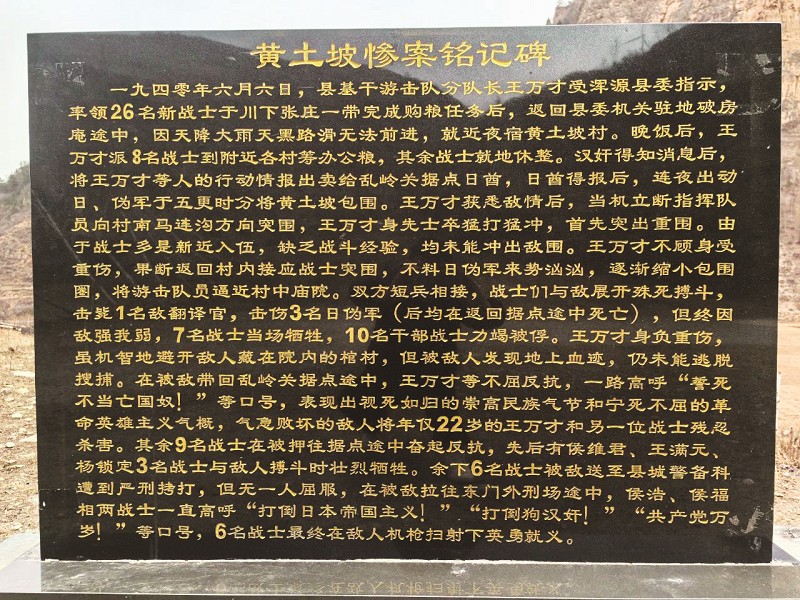 黄土坡惨案铭记碑
一九四零年六月六日，县基干游击队分队长王万才受浑源县委指示，
率领26名新战士于川下张庄一带完成购粮任务后，返回县委机关驻地破房
庵途中，因天降大雨天黑路滑无法前进，就近夜宿黄土坡村。晚饭后，王
万才派8名战士到附近各村筹办公粮，其余战士就地休整。汉奸得知消息后，
将王万才等人的行动情报出卖给乱岭关据点日酋，日酋得报后，连夜出动
日、伪军于五更时分将黄土坡包围。王万才获悉敌情后，当机立断指挥队
员向村南马连沟方向突围，王万才身先士卒猛打猛冲，首先突出重围。由
于战士多是新近入伍，缺乏战斗经验，均未能冲出敌围。王万才不顾身受
重伤，果断返回村内接应战士突围，不料日伪军来势汹汹，逐渐缩小包围
图，将游击队员逼近村中庙院。双方短兵相接，战士们与敌展开殊死搏斗，
击毙1名敌翻译官，击伤3名日伪军（后均在返回据点途中死亡），但终因
敌强我弱，7名战士当场牺牲，10名干部战士力竭被俘。王万才身负重伤，
虽机智地避开敌人藏在院内的棺材，但被敌人发现地上血迹，仍未能逃脱
搜捕。在被敌带回乱岭关据点途中，王万才等不屈反抗，一路高呼“誓死
不当亡国奴！”等口号，表现出视死如归的崇高民族气节和宁死不屈的革
命英雄主义气概，气急败坏的敌人将年仅22岁的王万才和另一位战士残忍
杀害。其余9名战士在被押往据点途中奋起反抗，先后有侯维君、王满元、
杨锁定3名战士与敌人搏斗时壮烈牺牲。余下6名战士被敌送至县城警备科
遭到严刑拷打，但无一人屈服，在被敌拉往东门外刑场途中，侯浩、侯福
相两战士一直高呼“打倒日本帝国主义！”“打倒狗汉奸！”“共产党万
岁！”等口号，6名战士最终在敌人机枪扫射下英勇就义。